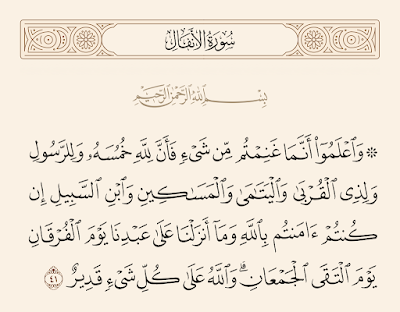 سُورَةُ الأَنفَالِ
بِسْمِ اللَّهِ الرَّحْمَٰنِ الرَّحِيمِ
۞ وَٱعۡلَمُوٓاْ أَنَّمَا غَنِمۡتُم مِّن شَيۡءٖ فَأَنَّ لِلَّهِ خُمُسَهُۥ وَلِلرَّسُولِ
وَلِذِي ٱلۡقُرۡبَىٰ وَٱلۡيَتَٰمَىٰ وَٱلۡمَسَٰكِينِ وَٱبۡنِ ٱلسَّبِيلِ إِن
كُنتُمۡ ءَامَنتُم بِٱللَّهِ وَمَآ أَنزَلۡنَا عَلَىٰ عَبۡدِنَا يَوۡمَ ٱلۡفُرۡقَانِ
يَوۡمَ ٱلۡتَقَى ٱلۡجَمۡعَانِۗ وَٱللَّهُ عَلَىٰ كُلِّ شَيۡءٖ قَدِيرٌ ٤١